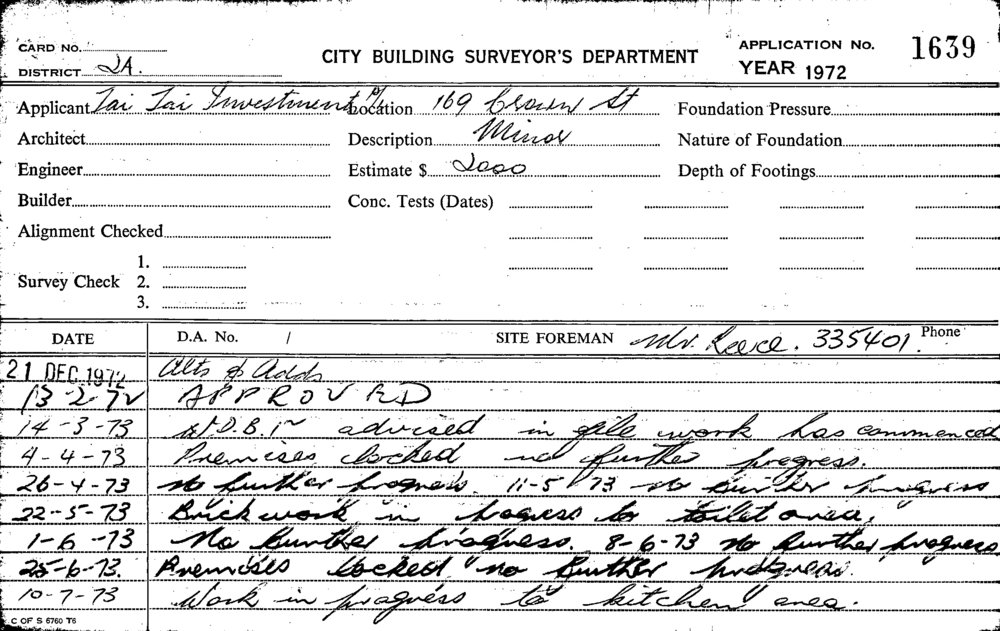 CARD NO.
DISTRICT 2A.
CITY BUILDING SURVEYOR'S DEPARTMENT
APPLICATION No. 1639
YEAR 1972
Applicant Tai Tai Investment P/L Location 169 Crown St Foundation Pressure
Architect Description Minor Nature of Foundation
Engineer Estimate $ 2000 Depth of Footings
Builder Conc. Tests (Dates)
Alignment Checked
Survey Check 1.
2.
3.
DATE D.A. No. / SITE FOREMAN Mr. Reece. 335401. Phone
21 DEC 1972 Alts & Adds
13-2-72 APPROVED
14-3-73 advised in file work has commenced
4-4-73 Premises locked no further progress.
26-4-73 No further progress. 11-5-73 No further progress
22-5-73 Brickwork in progress to toilet area.
1-6-73 No further progress. 8-6-73 No further progress
25-6-73. Premises locked no further progress.
10-7-73 Work in progress to kitchen area.
C OF S 6760 T6